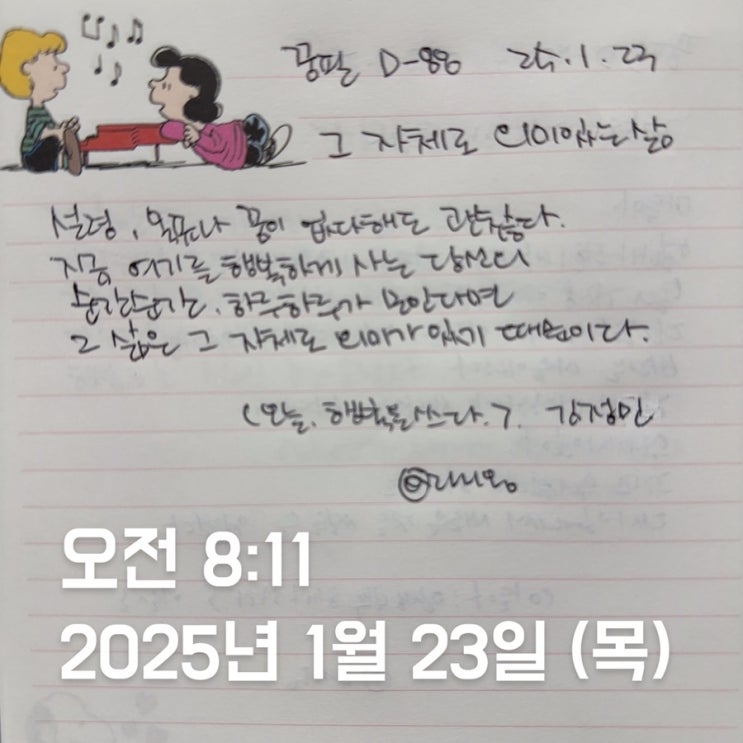 꿈필 D-88 25.1.23
그 자체로 의미있는 삶
설령, 목표나 꿈이 없다해도 괜찮다.
지금, 여기를 행복하게 사는 당신의
순간순간, 하루하루가 모인다면
그 삶은 그 자체로 의미가 있기 때문이다.
<오늘, 행복을 쓰다.> 김정민
오전 8:11
2025년 1월 23일 (목)